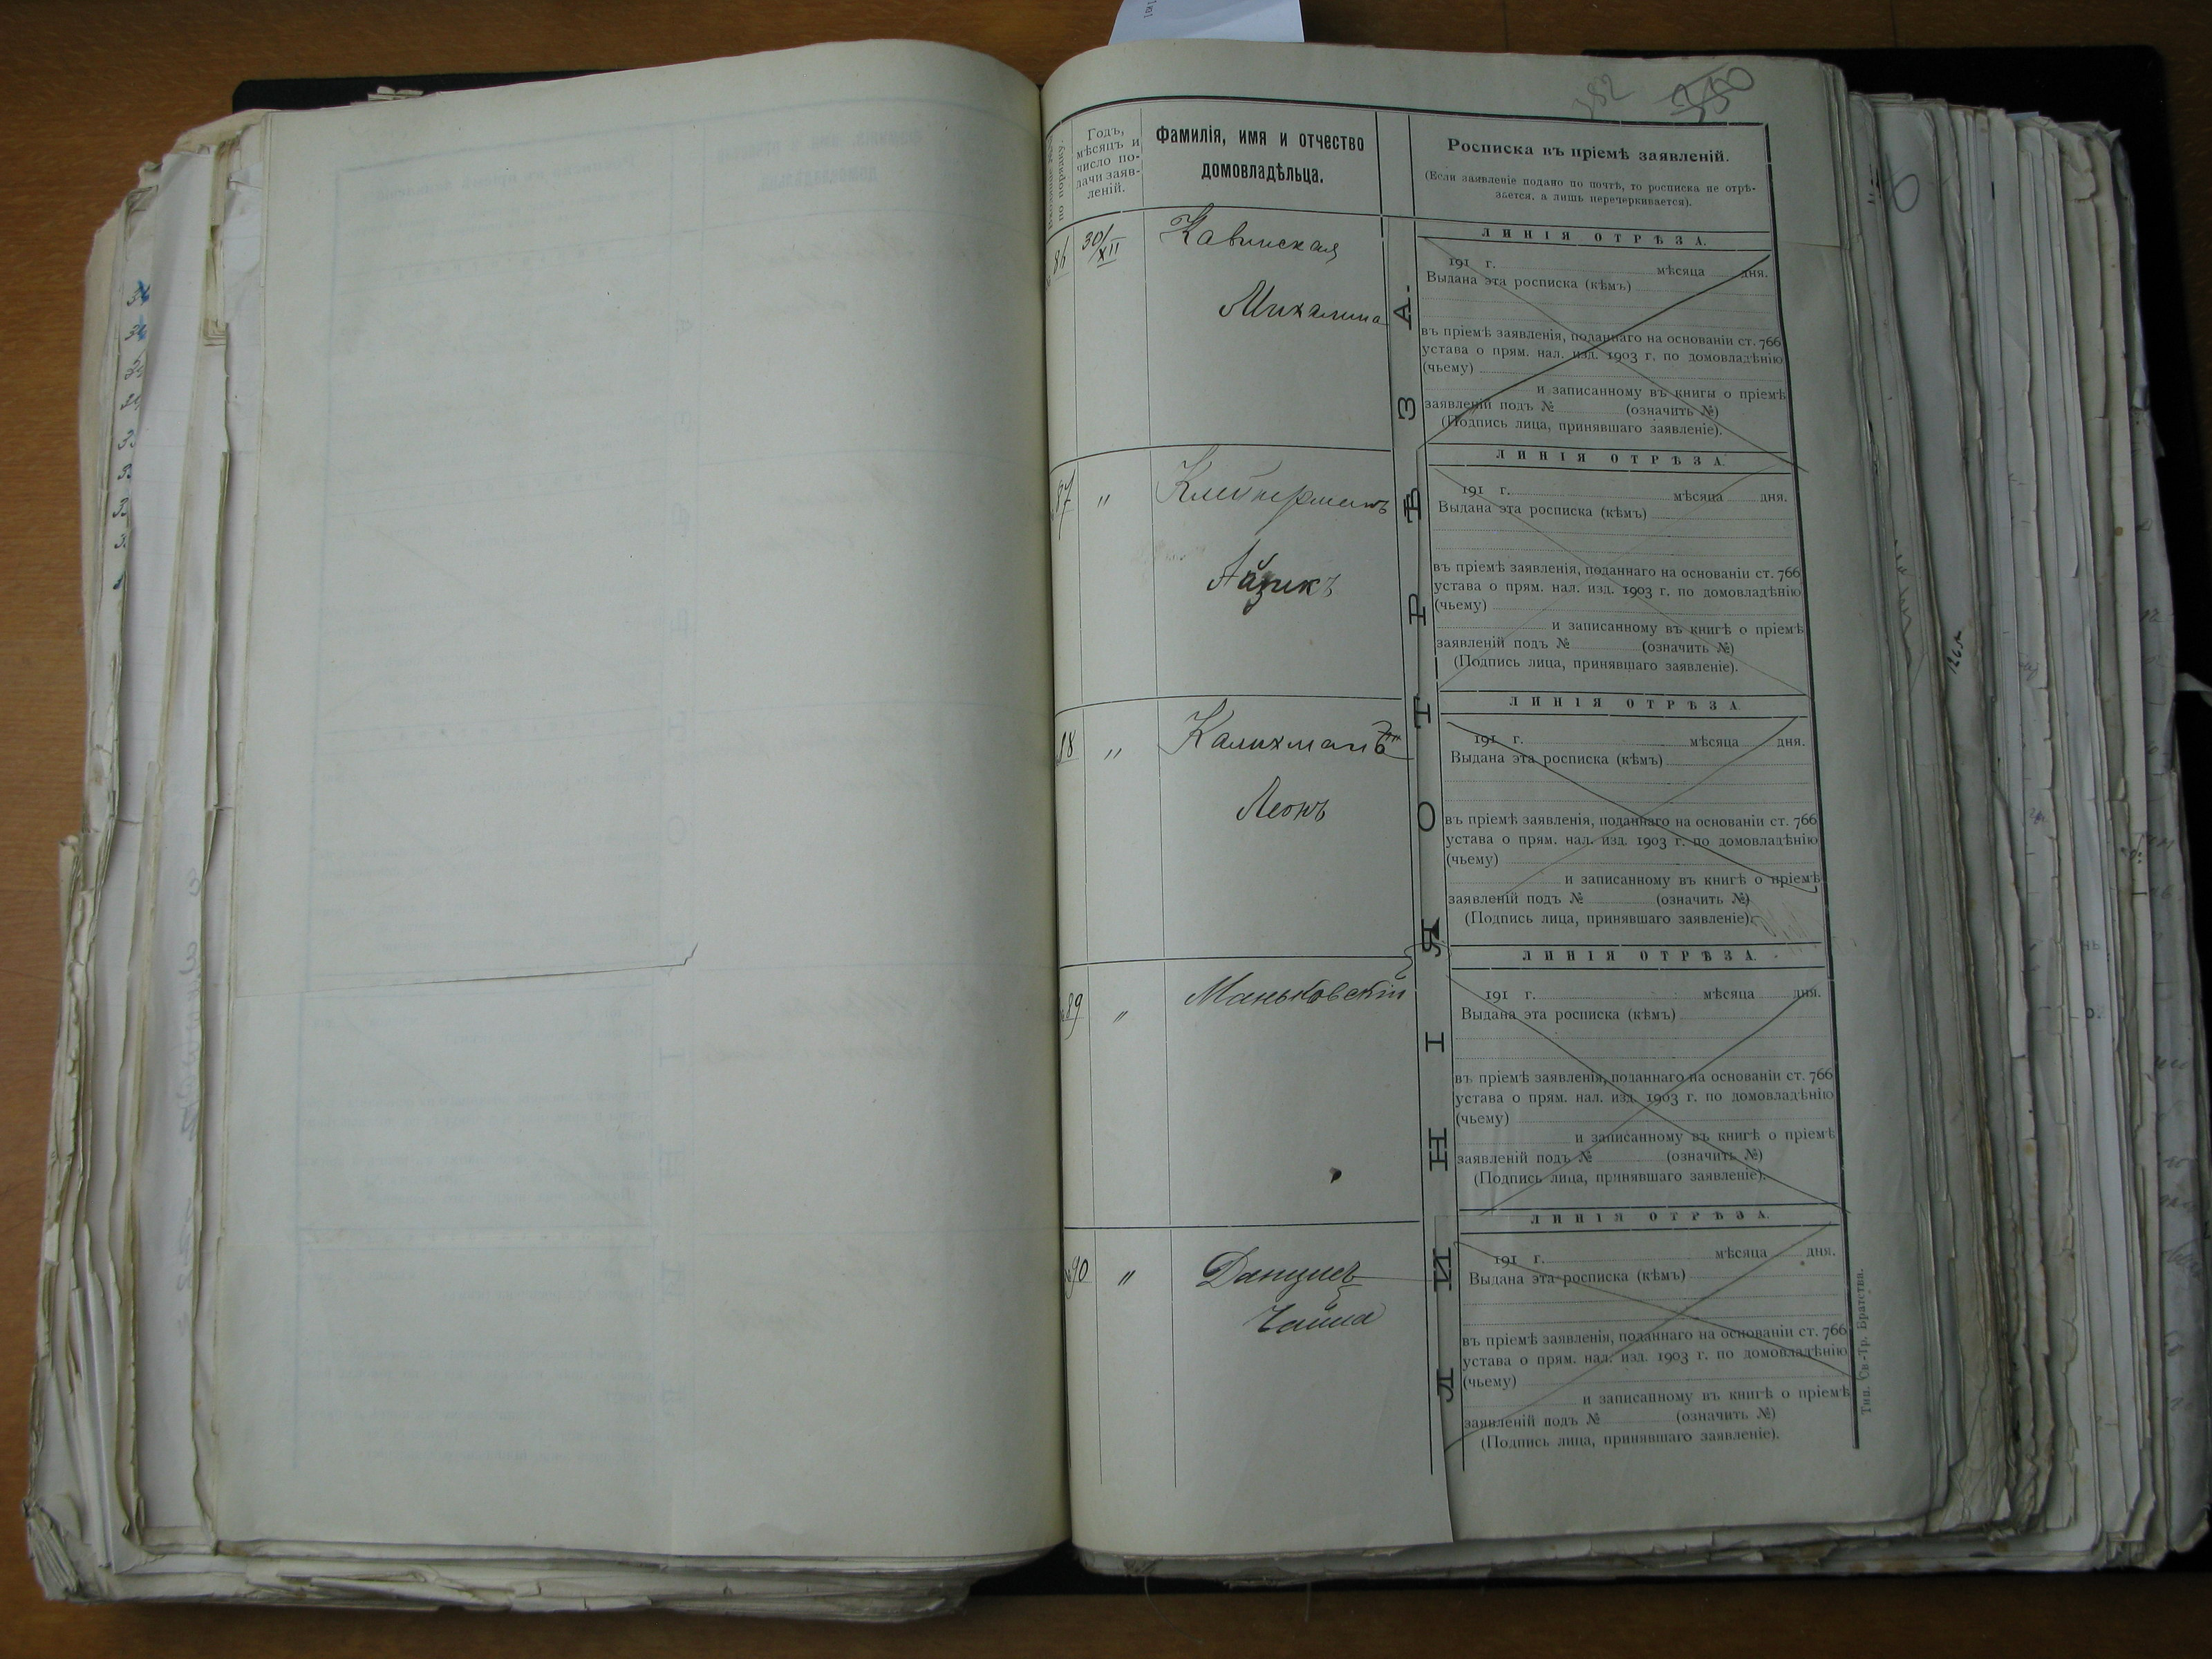 382
350
Входящіе №№ по порядку.
Годъ,
мѣсяцъ и
число по-
дачи заяв-
леній.
Фамилія, имя и отчество
домовладѣльца.
Росписка въ пріемѣ заявленій.
(Если заявленіе подано по почтѣ, то росписка не отрѣ-
зается, а лишь перечеркивается).
ЛИНІЯ ОТРѢЗА.
86
30/XII
Кавинская
Михалина
ЛИНІЯ ОТРѢЗА.
191 г. мѣсяца дня.
Выдана эта росписка (кѣмъ)
въ пріемѣ заявленія, поданнаго на основаніи ст. 766
устава о прям. нал. изд. 1903 г. по домовладѣнію
(чьему)
и записанному въ книгы о пріемѣ
заявленій подъ № (означить №)
(Подпись лица, принявшаго заявленіе).
87
"
Клейнерманъ
Айзикъ
ЛИНІЯ ОТРѢЗА.
191 г. мѣсяца дня.
Выдана эта росписка (кѣмъ)
въ пріемѣ заявленія, поданнаго на основаніи ст. 766
устава о прям. нал. изд. 1903 г. по домовладѣнію
(чьему)
и записанному въ книгѣ о пріемѣ
заявленій подъ № (означить №)
(Подпись лица, принявшаго заявленіе).
88
"
Калихманъ
Леонъ
ЛИНІЯ ОТРѢЗА.
191 г. мѣсяца дня.
Выдана эта росписка (кѣмъ)
въ пріемѣ заявленія, поданнаго на основаніи ст. 766
устава о прям. нал. изд. 1903 г. по домовладѣнію
(чьему)
и записанному въ книгѣ о пріемѣ
заявленій подъ № (означить №)
(Подпись лица, принявшаго заявленіе).
89
"
Маньковскій
ЛИНІЯ ОТРѢЗА.
191 г. мѣсяца дня.
Выдана эта росписка (кѣмъ)
въ пріемѣ заявленія, поданнаго на основаніи ст. 766
устава о прям. нал. изд. 1903 г. по домовладѣнію
(чьему)
и записанному въ книгѣ о пріемѣ
заявленій подъ № (означить №)
(Подпись лица, принявшаго заявленіе).
90
"
Данцисъ
ЛИНІЯ ОТРѢЗА.
191 г. мѣсяца дня.
Выдана эта росписка (кѣмъ)
въ пріемѣ заявленія, поданнаго на основаніи ст. 766
устава о прям. нал. изд. 1903 г. по домовладѣнію
(чьему)
и записанному въ книгѣ о пріемѣ
заявленій подъ № (означить №)
(Подпись лица, принявшаго заявленіе).
Тип. Св.-Тр. Братства.